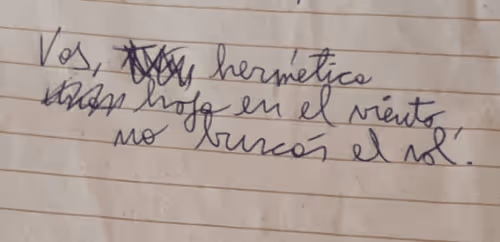 Vos, hermética
hoja en el viento,
no buscás el sol.